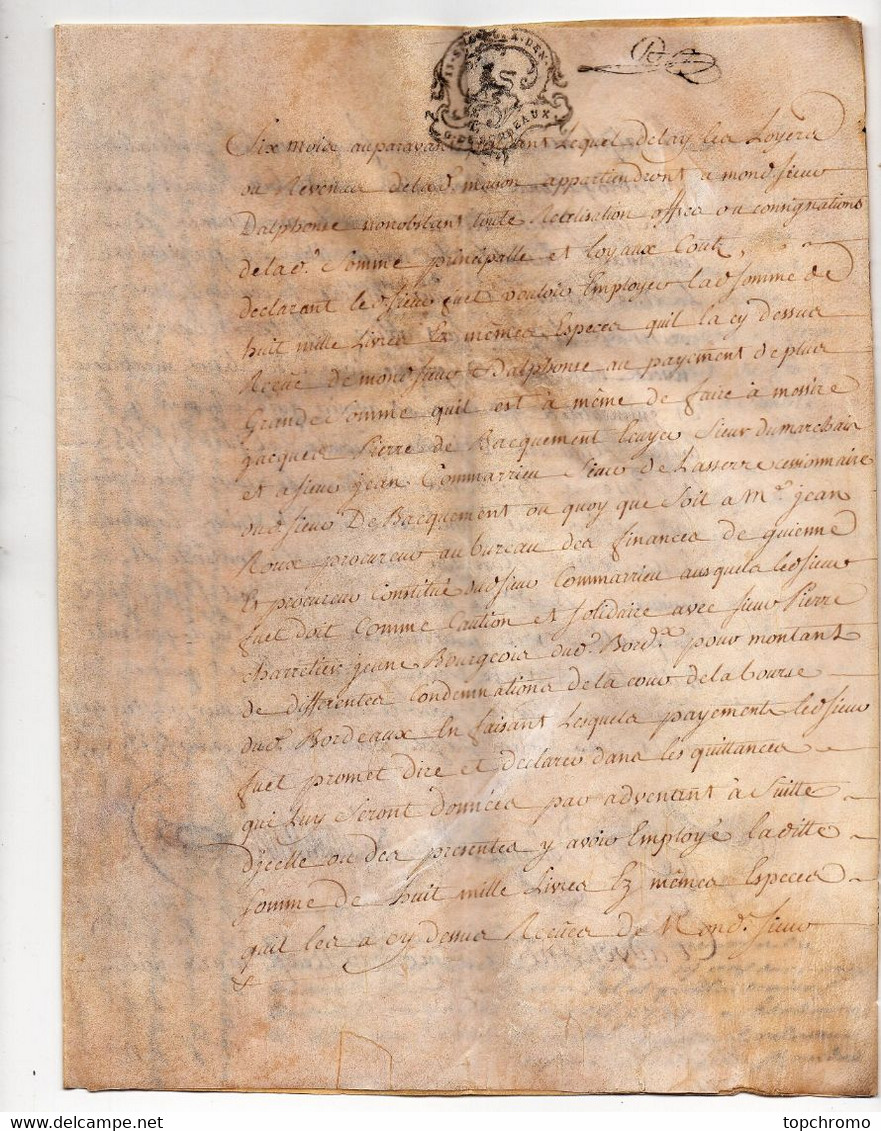 G. DE BORDEAUX
Six mois auparavant pendant Lequel delay les Loyers
ou Revenus delad.e maison appartiendront a mond. sieur
Dalphonse nonobstant toute Realisation offres ou consignations
delad.e Somme principalle et loyaux Couts,
declarant led. sieur fuet vouloir Employer lad. somme de
huit mille Livres Ez mêmes Especes quil la cy dessus
Receüe de mond. sieur Dalphonse au payement de plus
Grande Somme quil est à même de faire à messire
jacques Pierre de Bacquement Ecuyer Sieur dumarchais
et a sieur jean Commarrieu Sieur de Lasserre cessionnaire
dud. sieur De Bacquement ou quoy que Soit a M.e jean
Roux procureur au bureau des finances de guienne
Et procureur Constitué dud. sieur Commarrieu ausquels led. sieur
fuet doit Comme Caution et Solidaire avec sieur Pierre
charretier jeune Bourgeois dud. Bord.x pour montant
de differentes Condemnations de la cour de la bourse
dud. Bordeaux En faisant Lesquels payements led. sieur
fuet promet dire et declarer dans les quittances
qui Luy Seront données par adventint à Suitte
D'jcelle ou des presentes y avoir Employé lad. ditte
Somme de huit mille Livres Ez mêmes Especes
quil les a cy dessus Receües de Mond. sieur
topchromo